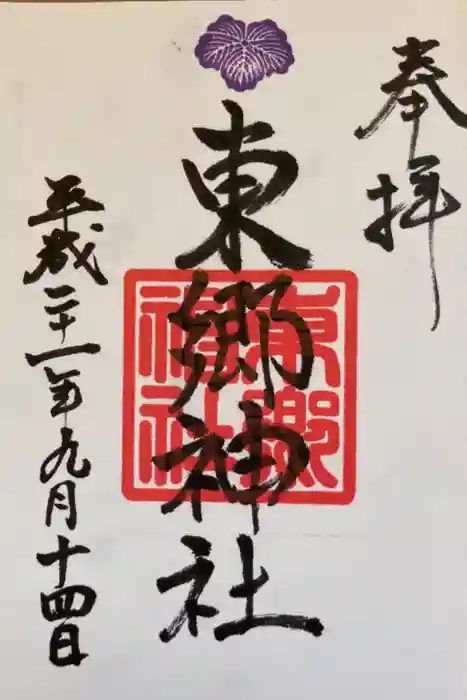 奉拝
東郷神社
東郷神社
平成二十一年九月十四日